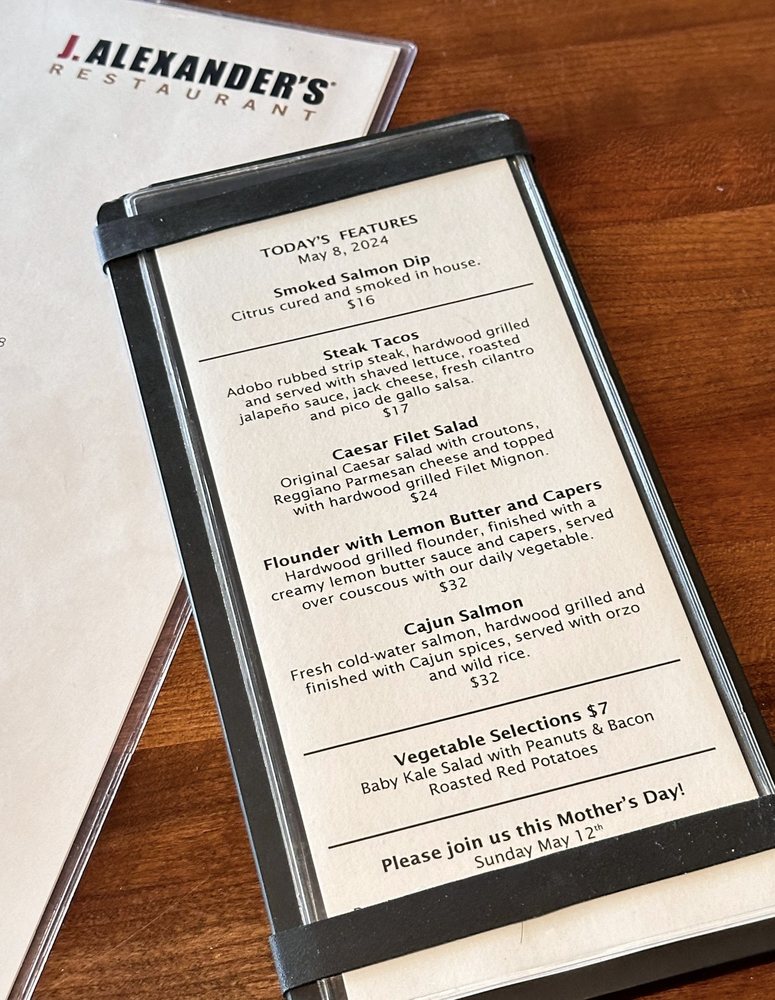 J. ALEXANDER'S
RESTAURANT
8
TODAY'S FEATURES
May 8, 2024
Smoked Salmon Dip
Citrus cured and smoked in house.
$16
Steak Tacos
Adobo rubbed strip steak, hardwood grilled
and served with shaved lettuce, roasted
jalapeño sauce, jack cheese, fresh cilantro
and pico de gallo salsa.
$17
Caesar Filet Salad
Original Caesar salad with croutons,
Reggiano Parmesan cheese and topped
with hardwood grilled Filet Mignon.
$24
Flounder with Lemon Butter and Capers
Hardwood grilled flounder, finished with a
creamy lemon butter sauce and capers, served
over couscous with our daily vegetable.
$32
Cajun Salmon
Fresh cold-water salmon, hardwood grilled and
finished with Cajun spices, served with orzo
and wild rice.
$32
Vegetable Selections $7
Baby Kale Salad with Peanuts & Bacon
Roasted Red Potatoes
Please join us this Mother's Day!
Sunday May 12th